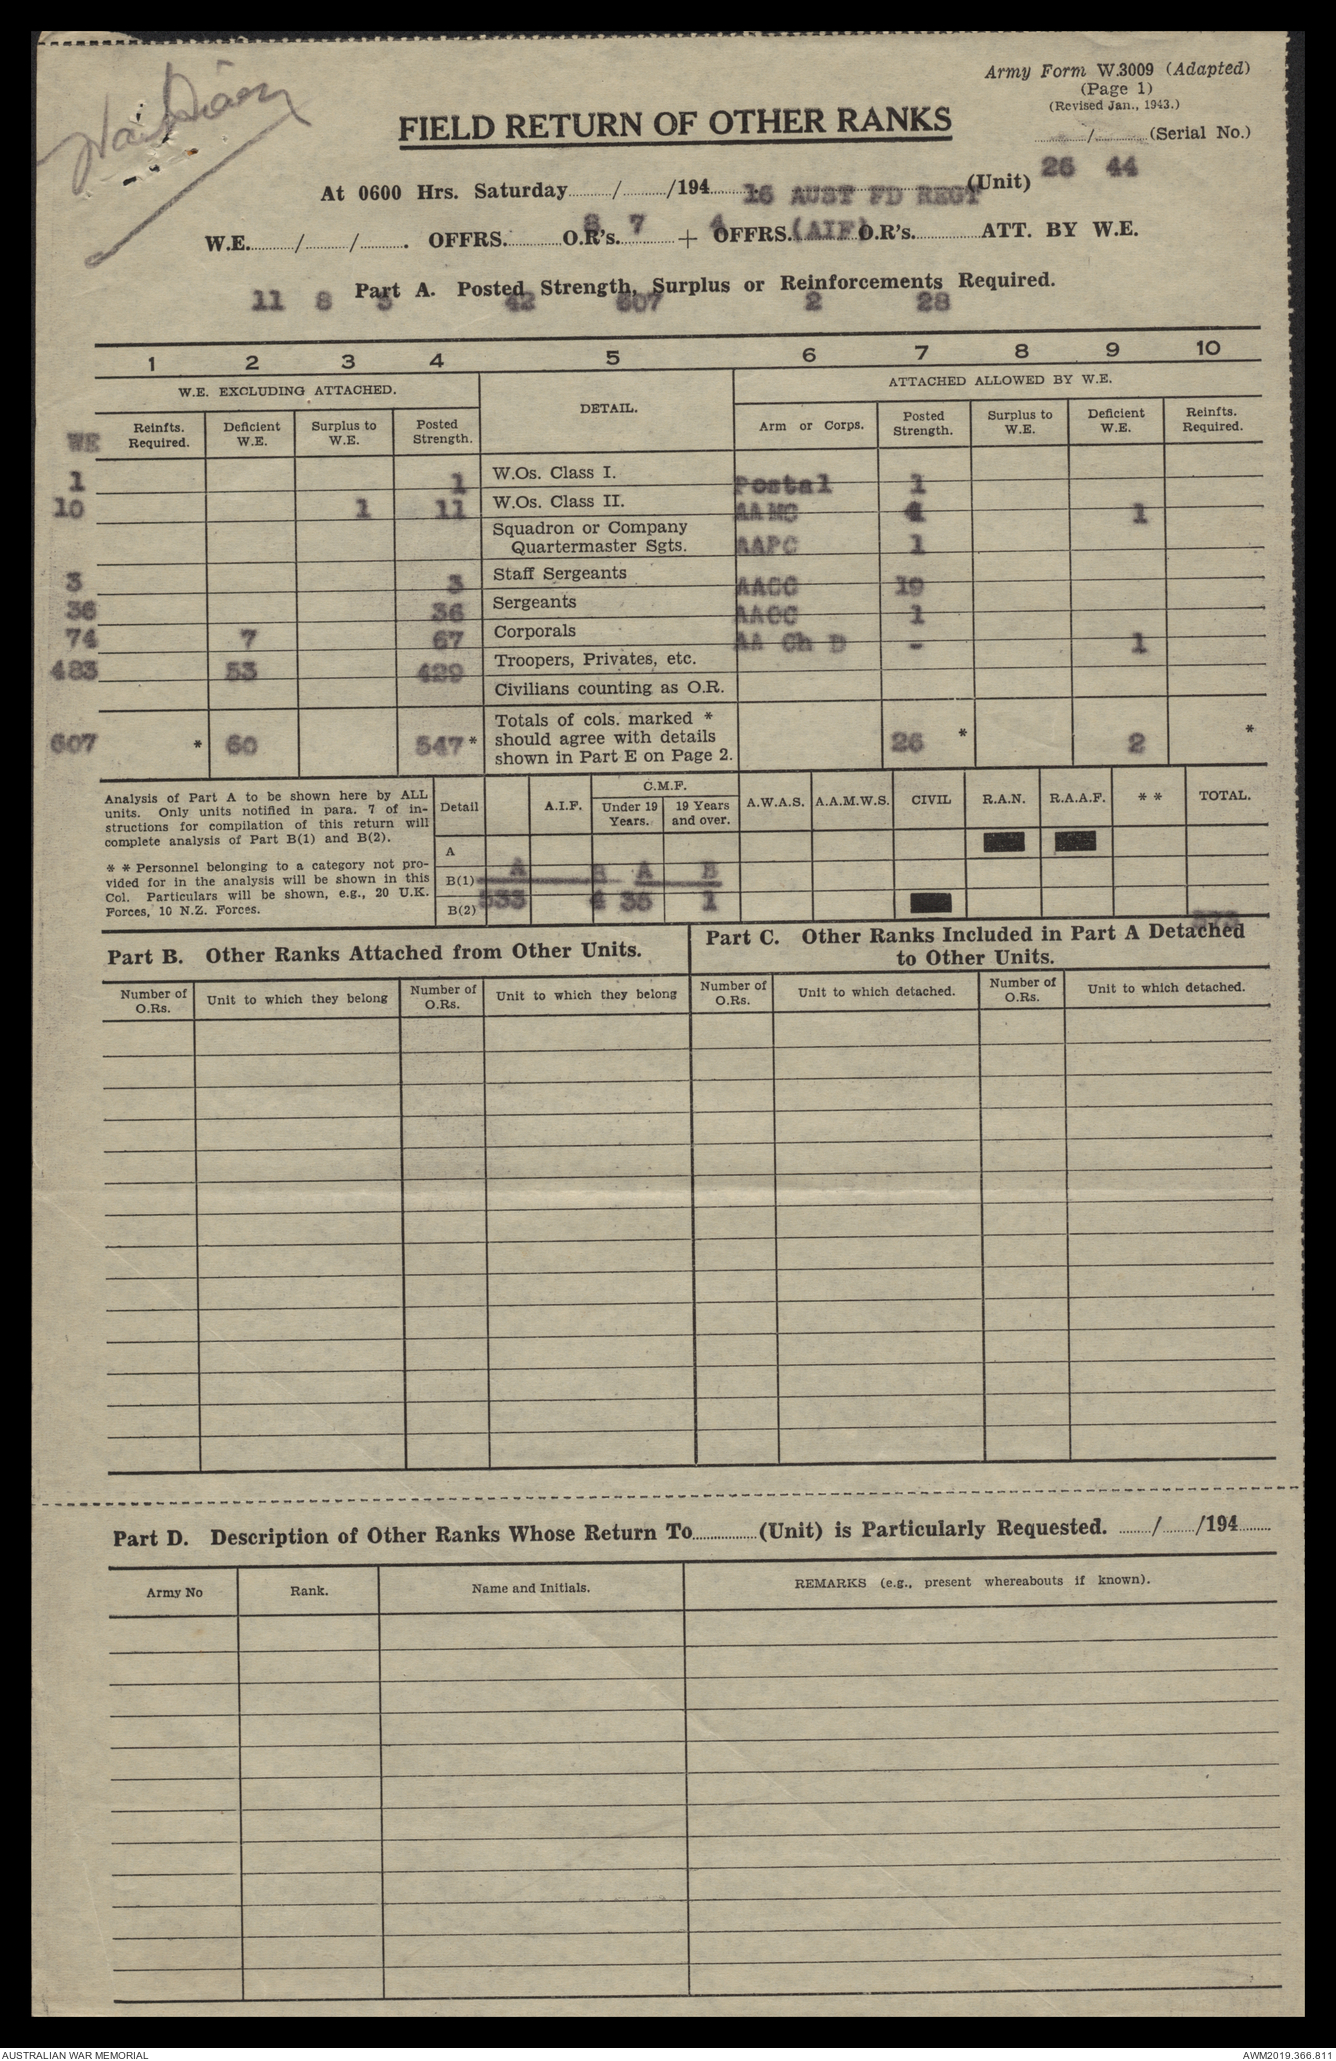 War Diary
Army Form W.3009 (Adapted)
(Page 1)
(Revised Jan., 1943.)
FIELD RETURN OF OTHER RANKS
....../......(Serial No.)
26 44
At 0600 Hrs. Saturday....../....../194...... 16 AUST FD REGT (Unit)
8 7 4 (AIF)
W.E....../....../....... OFFRS.......O.R's....... + OFFRS.......O.R's.......ATT. BY W.E.
Part A. Posted Strength, Surplus or Reinforcements Required.
11 8 3 42 607 2 28
1 2 3 4 5 6 7 8 9 10
W.E. EXCLUDING ATTACHED. DETAIL. ATTACHED ALLOWED BY W.E.
WE Reinfts. Required. Deficient W.E. Surplus to W.E. Posted Strength. Arm or Corps. Posted Strength. Surplus to W.E. Deficient W.E. Reinfts. Required.
1 1 W.Os. Class I. Postal 1
10 1 11 W.Os. Class II. AAMC 4 1
Squadron or Company
Quartermaster Sgts. AAPC 1
3 3 Staff Sergeants AACC 19
36 36 Sergeants AAOC 1
74 7 67 Corporals AA Ch D - 1
483 53 429 Troopers, Privates, etc.
Civilians counting as O.R.
607 * 60 547 * Totals of cols. marked * should agree with details shown in Part E on Page 2. 26 * 2 *
Analysis of Part A to be shown here by ALL
units. Only units notified in para. 7 of in-
structions for compilation of this return will
complete analysis of Part B(1) and B(2).
* * Personnel belonging to a category not pro-
vided for in the analysis will be shown in this
Col. Particulars will be shown, e.g., 20 U.K.
Forces, 10 N.Z. Forces.
Detail A.I.F. C.M.F. Under 19 Years. 19 Years and over. A.W.A.S. A.A.M.W.S. CIVIL R.A.N. R.A.A.F. * * TOTAL.
A
B(1) A B A B
B(2) 533 4 35 1 573
Part B. Other Ranks Attached from Other Units.
Part C. Other Ranks Included in Part A Detached
to Other Units.
Number of O.Rs. Unit to which they belong Number of O.Rs. Unit to which they belong Number of O.Rs. Unit to which detached. Number of O.Rs. Unit to which detached.
Part D. Description of Other Ranks Whose Return To............(Unit) is Particularly Requested. ....../....../194......
Army No Rank. Name and Initials. REMARKS (e.g., present whereabouts if known).
AUSTRALIAN WAR MEMORIAL
AWM2019.366.811